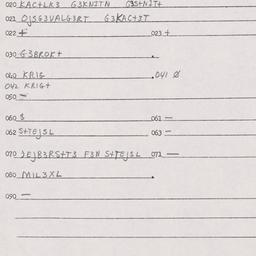 020 KAC+LK3 G3KNITN G3S+NJT+
021 OJSG3VALG3RT G3KAC+3T
022 + 023 +
030 G3BROK+ .
040 KRIG . 041 Ø
042 KRIG+
050 —
060 $ 061 —
062 S+TEJSL 063 —
070 JEJB3RS+T3 F3N S+TEJSL 071 —
080 MIL3XL .
090 —